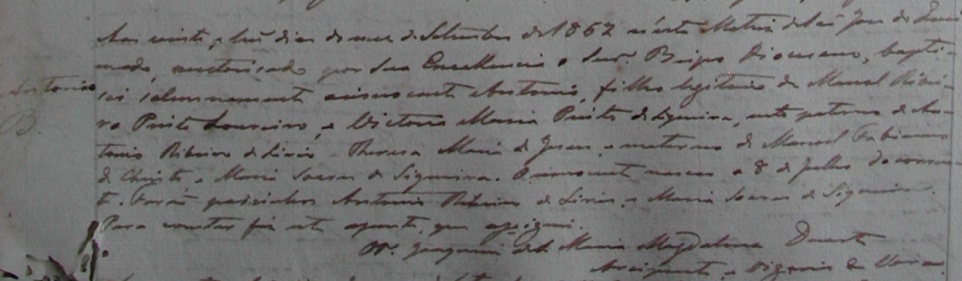 Aos vinte e tres dias do mez de Setembro de 1862 n'esta Matriz de São Jose do
autorisado por Sua Excellencia o Snr. Bispo Diocesano, bapti-
Antonio
sei solemnemente o innocente Antonio, filho legitimo de Manoel Ribei-
B.
ro Pinto Loureiro, e Victoria Maria Pinto de Siqueira, neto paterno de An-
tonio Ribeiro de e Theresa Maria de Jesus, e materno de Manoel Fabiano
de Christo e Maria Soares de Siqueira. O innocente nasceu a 8 de Julho do corren-
te. Forão padrinhos Antonio Ribeiro de e Maria Soares de Siqueira.
Para constar fiz este que assignei.
Joaquim de S. Maria Magdalena Duarte
Arcipreste e Vigario da Vara